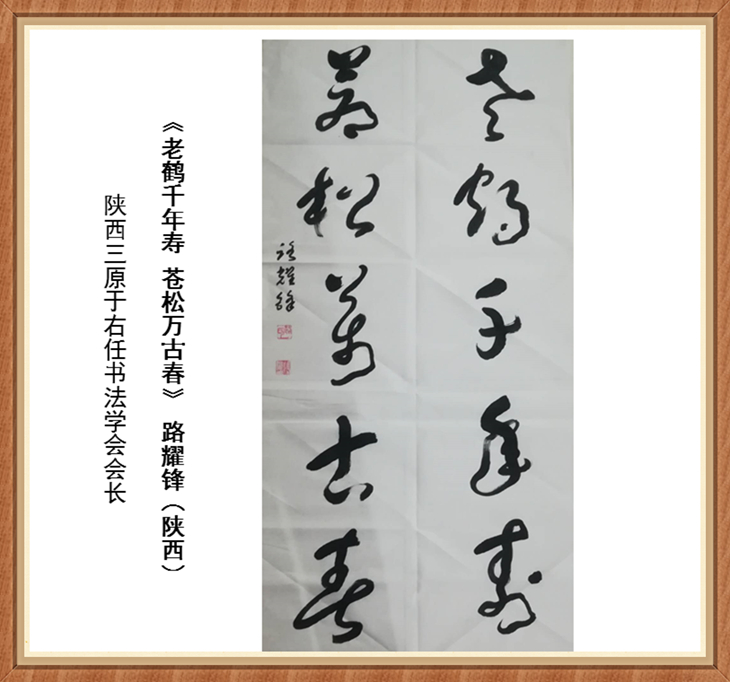 老鹤千年寿
苍松万古春
路耀锋
《老鹤千年寿 苍松万古春》 路耀锋（陕西）
陕西三原于右任书法学会会长